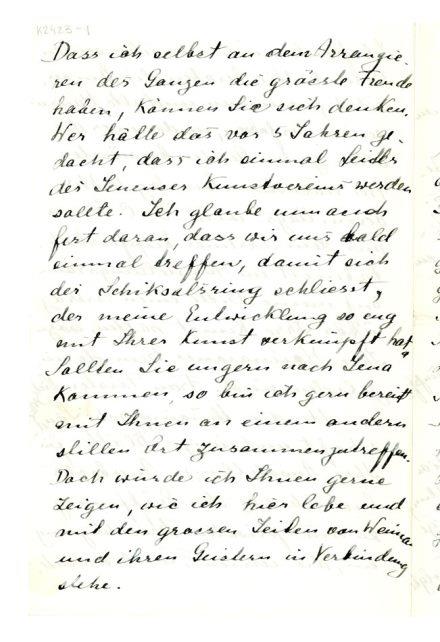 K2423-1
Dass ich selbst an dem Arrangie-
ren des Ganzen die grösste Freude
haben, können Sie sich denken.
Wer hätte das vor 5 Jahren ge-
dacht, dass ich einmal Leiter
des Jenenser Kunstvereins werden
sollte. Ich glaube nun auch
fest daran, dass wir uns bald
einmal treffen, damit sich
der Schiksalsring schliesst,
der meine Entwicklung so eng
mit Ihrer Kunst verknüpft hat
Sollten Sie ungern nach Jena
kommen, so bin ich gern bereit
mit Ihnen an einem andern
stillen Ort zusammenzutreffen.
Doch würde ich Ihnen gerne
zeigen, wie ich hier lebe und
mit den grossen Zeiten von Weimar
und ihren Geistern in Verbindung
stehe.